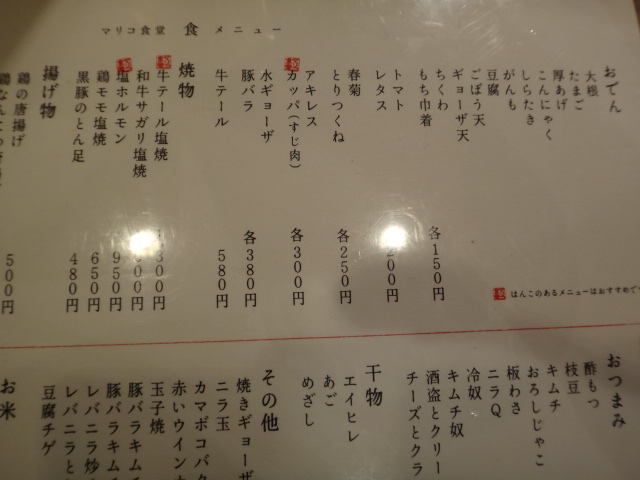 マリコ食堂 食 メニュー
おでん
大根
たまご
厚あげ
こんにゃく
しらたき
がんも
豆腐
ごぼう天
ギョーザ天
ちくわ
もち巾着
各150円
トマト
レタス
200円
春菊
とりつくね
各250円
アキレス
カッパ(すじ肉)
各300円
水ギョーザ
豚バラ
各380円
牛テール
580円
はんこのあるメニューはおすすめで
焼物
牛テール塩焼
300円
和牛サガリ塩焼
00円
塩ホルモン
950円
鶏モモ塩焼
650円
黒豚のとん足
480円
揚げ物
鶏の唐揚げ
500円
おつまみ
酢もつ
枝豆
キムチ
おろしじゃこ
板わさ
ニラQ
冷奴
キムチ奴
酒盗とクリー
チーズとクラ
干物
エイヒレ
あご
めざし
その他
焼きギョーザ
ニラ玉
カマボコバタ
赤いウインナ
玉子焼
豚バラキムチ
豚バラキム
レバニラ炒
レバニラと
豆腐チゲ
お米